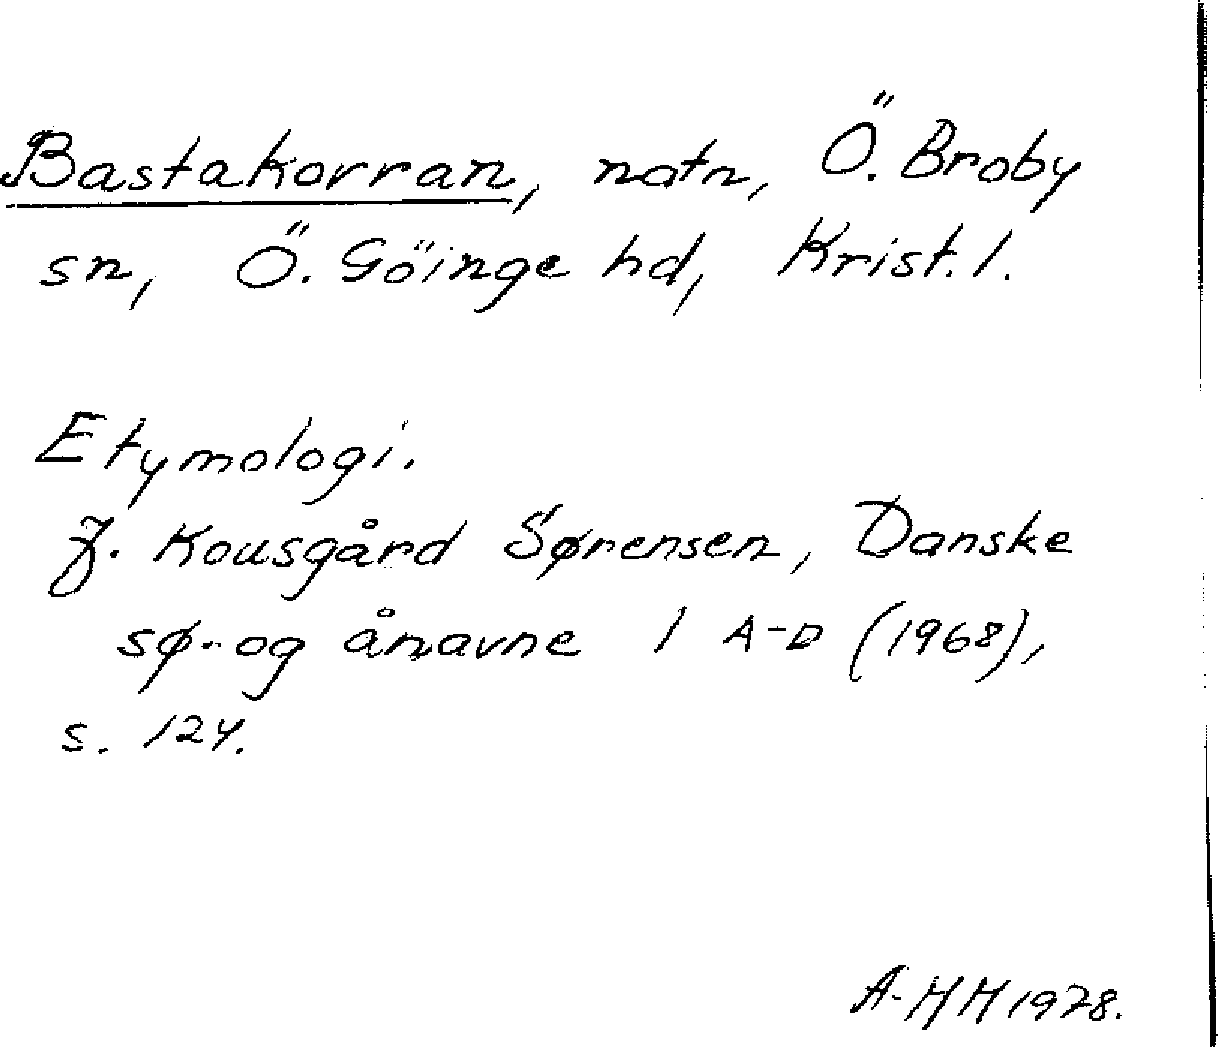 Bastakorran, natn, Ö. Broby
sn, Ö. Göinge hd, Krist. l.
Etymologi.
J. Kousgård Sørensen, Danske
sø- og ånavne 1 A-D (1968),
s. 124.
A-HH 1978.